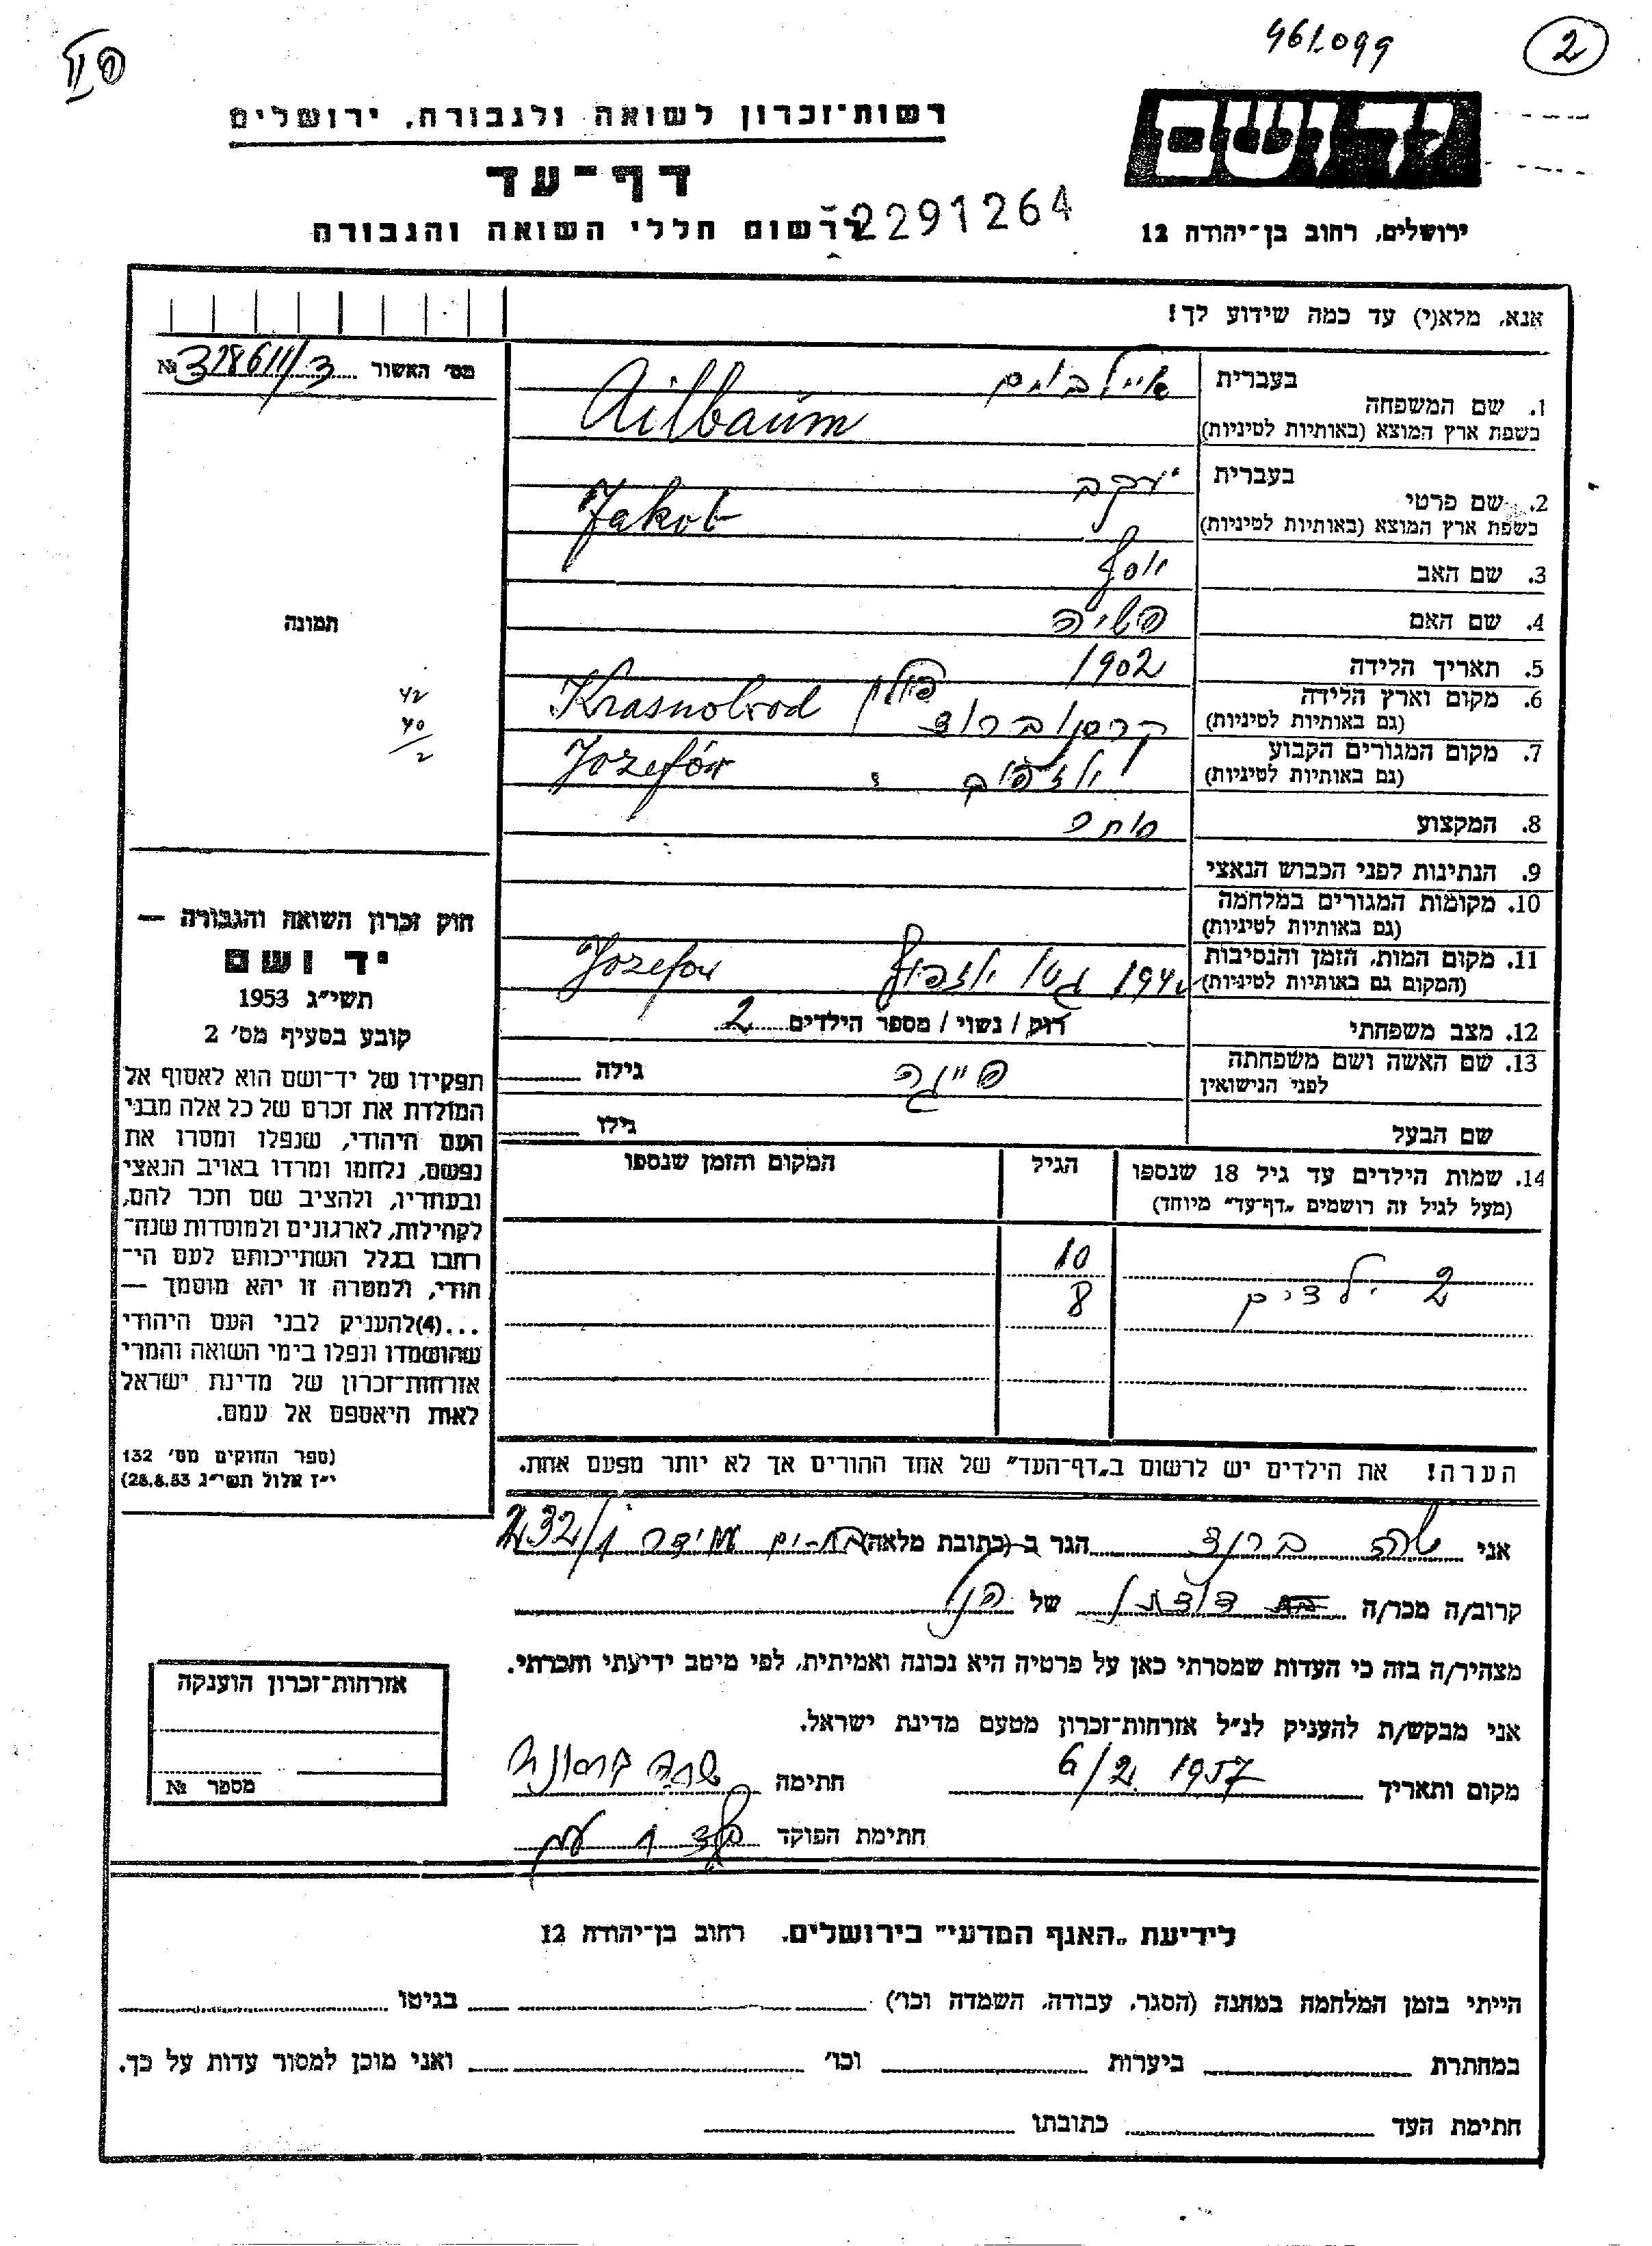 461099
2
יד ושם
רשות־זכרון לשואה ולגבורה, ירושלים
דף־עד
לרשום חללי השואה והגבורה
2291264
ירושלים, רחוב בן־יהודה 12
אנא, מלא(י) עד כמה שידוע לך!
מס׳ האשור № 328611/3
תמונה
42
40
2
1. שם המשפחה בעברית אײלבוים
בשפת ארץ המוצא (באותיות לטיניות) Ailbaum
2. שם פרטי בעברית יעקב
בשפת ארץ המוצא (באותיות לטיניות) Jakob
3. שם האב יוסף
4. שם האם
5. תאריך הלידה 1902
6. מקום וארץ הלידה קרסנוברוד פולין Krasnobrod
(גם באותיות לטיניות)
7. מקום המגורים הקבוע יוזפוב Jozefów
(גם באותיות לטיניות)
8. המקצוע סוחר
9. הנתינות לפני הכבוש הנאצי
10. מקומות המגורים במלחמה
(גם באותיות לטיניות)
11. מקום המות, הזמן והנסיבות 1942 גטו יוזפוף Jozefow
(המקום גם באותיות לטיניות)
12. מצב משפחתי רוק / נשוי / מספר הילדים 2
13. שם האשה ושם משפחתה לפני הנישואין פייגה גילה
שם הבעל גילו
14. שמות הילדים עד גיל 18 שנספו
(מעל לגיל זה רושמים „דף־עד״ מיוחד)
הגיל
המקום והזמן שנספו
2 ילדים
10
8
הערה! את הילדים יש לרשום ב„דף־העד״ של אחד ההורים אך לא יותר מפעם אחת.
חוק זכרון השואה והגבורה —
יד ושם
תשי״ג 1953
קובע בסעיף מס׳ 2
תפקידו של יד־ושם הוא לאסוף אל
המולדת את זכרם של כל אלה מבני
העם היהודי, שנפלו ומסרו את
נפשם, נלחמו ומרדו באויב הנאצי
ובעוזריו, ולהציב שם וזכר להם,
לקהילות, לארגונים ולמוסדות שנח־
רבו בגלל השתייכותם לעם הי־
הודי, ולמטרה זו יהא מוסמך —
...(4)להעניק לבני העם היהודי
שהושמדו ונפלו בימי השואה והמרי
אזרחות־זכרון של מדינת ישראל
לאות היאספם אל עמם.
(ספר החוקים מס׳ 132
י״ז אלול תשי״ג 28.8.53)
אני שרה ברנד הגר ב־(כתובת מלאה) בת-ים עמידר 232/1
קרוב/ה מכר/ה בת דודתו של הנ״ל
מצהיר/ה בזה כי העדות שמסרתי כאן על פרטיה היא נכונה ואמיתית, לפי מיטב ידיעתי והכרתי.
אני מבקש/ת להעניק לנ״ל אזרחות־זכרון מטעם מדינת ישראל.
מקום ותאריך 6/2 1957 חתימה
חתימת הפוקד
אזרחות־זכרון הוענקה
מספר №
לידיעת „האגף המדעי״ בירושלים. רחוב בן־יהודה 12
הייתי בזמן המלחמה במחנה (הסגר, עבודה, השמדה וכו׳) בגיטו
במחתרת ביערות וכו׳ ואני מוכן למסור עדות על כך.
חתימת העד כתובתו